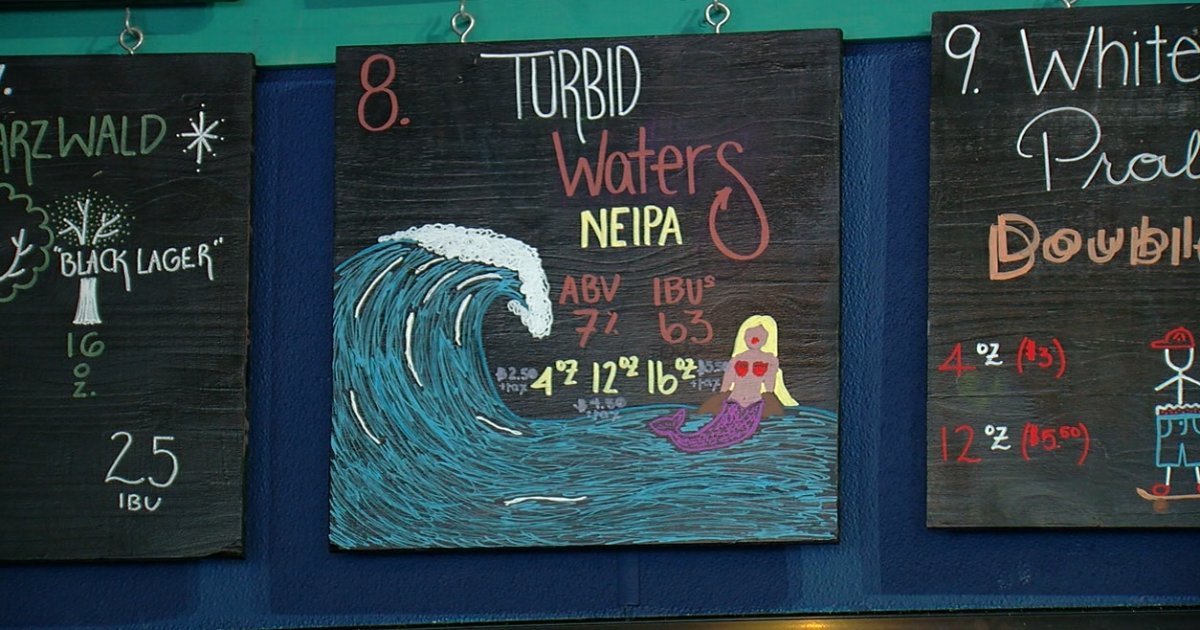 ARZWALD
"BLACK LAGER"
16
O
Z.
25
IBU
8.
TURBID
Waters
NEIPA
ABV IBUs
7% 63
$2.50 +tax 4oz 12oz 16oz
$4.50
+tax
9. White
Doubl
4oz ($3)
12oz ($5.50)